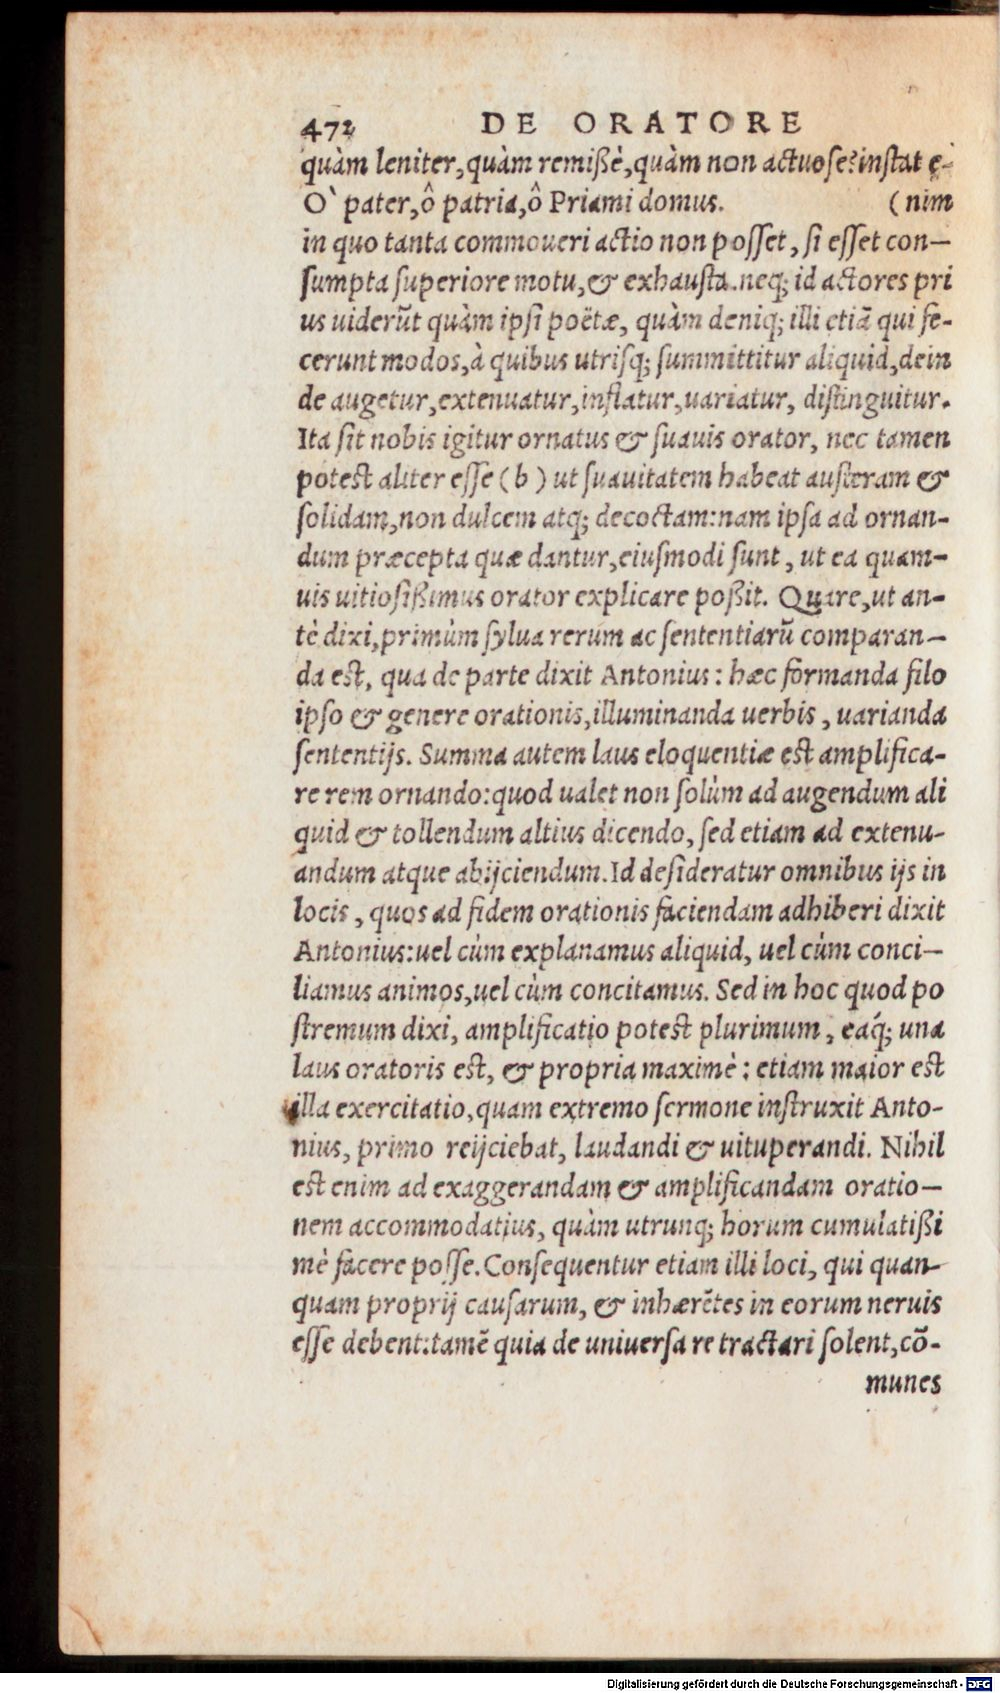 472 DE ORATORE
quàm leniter, quàm remißè, quàm non actuose? instat e-
O` pater, ô patria, ô Priami domus. (nim
in quo tanta commoueri actio non posset, si esset con-
sumpta superiore motu, & exhausta. neq; id actores pri
us uiderũt quàm ipsi poëtæ, quàm deniq; illi etiã qui fe-
cerunt modos, à quibus utrisq; summittitur aliquid, dein
de augetur, extenuatur, inflatur, uariatur, distinguitur.
Ita sit nobis igitur ornatus & suauis orator, nec tamen
potest aliter esse ( b ) ut suauitatem habeat austeram &
solidam, non dulcem atq; decoctam: nam ipsa ad ornan-
dum præcepta quæ dantur, eiusmodi sunt, ut ea quam-
uis uitiosißimus orator explicare poßit. Quare, ut an-
tè dixi, primùm sylua rerum ac sententiarũ comparan-
da est, qua de parte dixit Antonius: hæc formanda filo
ipso & genere orationis, illuminanda uerbis, uarianda
sententijs. Summa autem laus eloquentiæ est amplifica-
re rem ornando: quod ualet non solùm ad augendum ali
quid & tollendum altius dicendo, sed etiam ad extenu-
andum atque abijciendum. Id desideratur omnibus ijs in
locis, quos ad fidem orationis faciendam adhiberi dixit
Antonius: uel cùm explanamus aliquid, uel cùm conci-
liamus animos, uel cùm concitamus. Sed in hoc quod po
stremum dixi, amplificatio potest plurimum, eaq́; una
laus oratoris est, & propria maximè: etiam maior est
illa exercitatio, quam extremo sermone instruxit Anto-
nius, primo reijciebat, laudandi & uituperandi. Nihil
est enim ad exaggerandam & amplificandam oratio-
nem accommodatius, quàm utrunq; horum cumulatißi
mè facere posse. Consequentur etiam illi loci, qui quan-
quam proprij causarum, & inhærẽtes in eorum neruis
esse debent: tamẽ quia de uniuersa re tractari solent, cõ-
munes
Digitalisierung gefördert durch die Deutsche Forschungsgemeinschaft - DFG